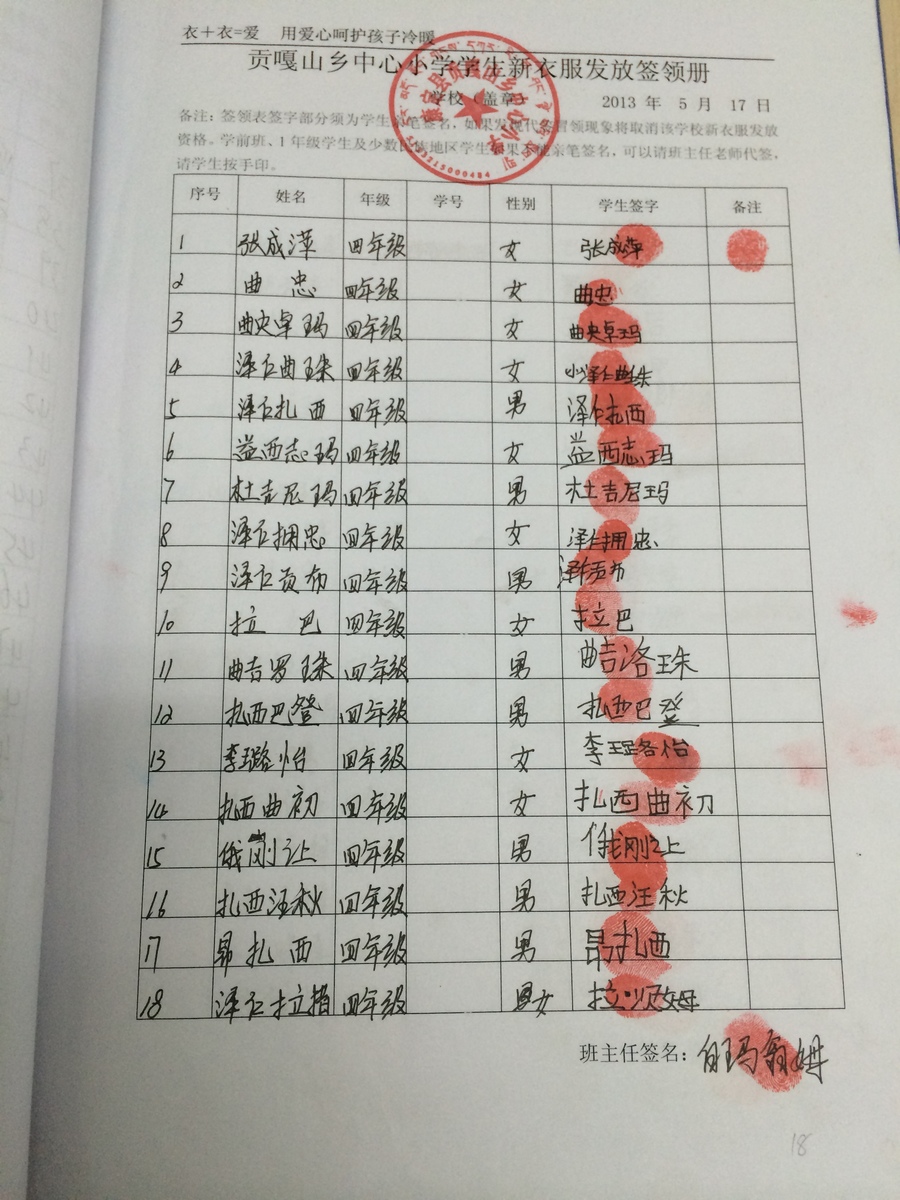 衣+衣=爱 用爱心呵护孩子冷暖
贡嘎山乡中心小学学生新衣服发放签领册
学校（盖章） 2013 年 5 月 17 日
备注：签领表签字部分须为学生亲笔签名，如果发现代签冒领现象将取消该学校新衣服发放
资格。学前班、1年级学生及少数民族地区学生如果不能亲笔签名，可以请班主任老师代签，
请学生按手印。
序号 姓名 年级 学号 性别 学生签字 备注
1 张成萍 四年级 女 张成萍
2 曲忠 四年级 女 曲忠
3 曲央卓玛 四年级 女 曲央卓玛
4 泽仁曲珠 四年级 女 小泽仁曲珠
5 泽仁扎西 四年级 男 泽仁扎西
6 益西志玛 四年级 女 益西志玛
7 杜吉尼玛 四年级 男 杜吉尼玛
8 泽仁拥忠 四年级 女 泽仁拥忠
9 泽仁贡布 四年级 男 泽仁贡布
10 拉巴 四年级 女 拉巴
11 曲吉罗珠 四年级 男 曲吉洛珠
12 扎西巴登 四年级 男 扎西巴登
13 李璐怡 四年级 女 李璐怡
14 扎西曲初 四年级 女 扎西曲初
15 俄刚让 四年级 男 俄刚让
16 扎西汪秋 四年级 男 扎西汪秋
17 昂扎西 四年级 男 昂扎西
18 泽仁拉措 四年级 女
班主任签名：白玛翁姆
18